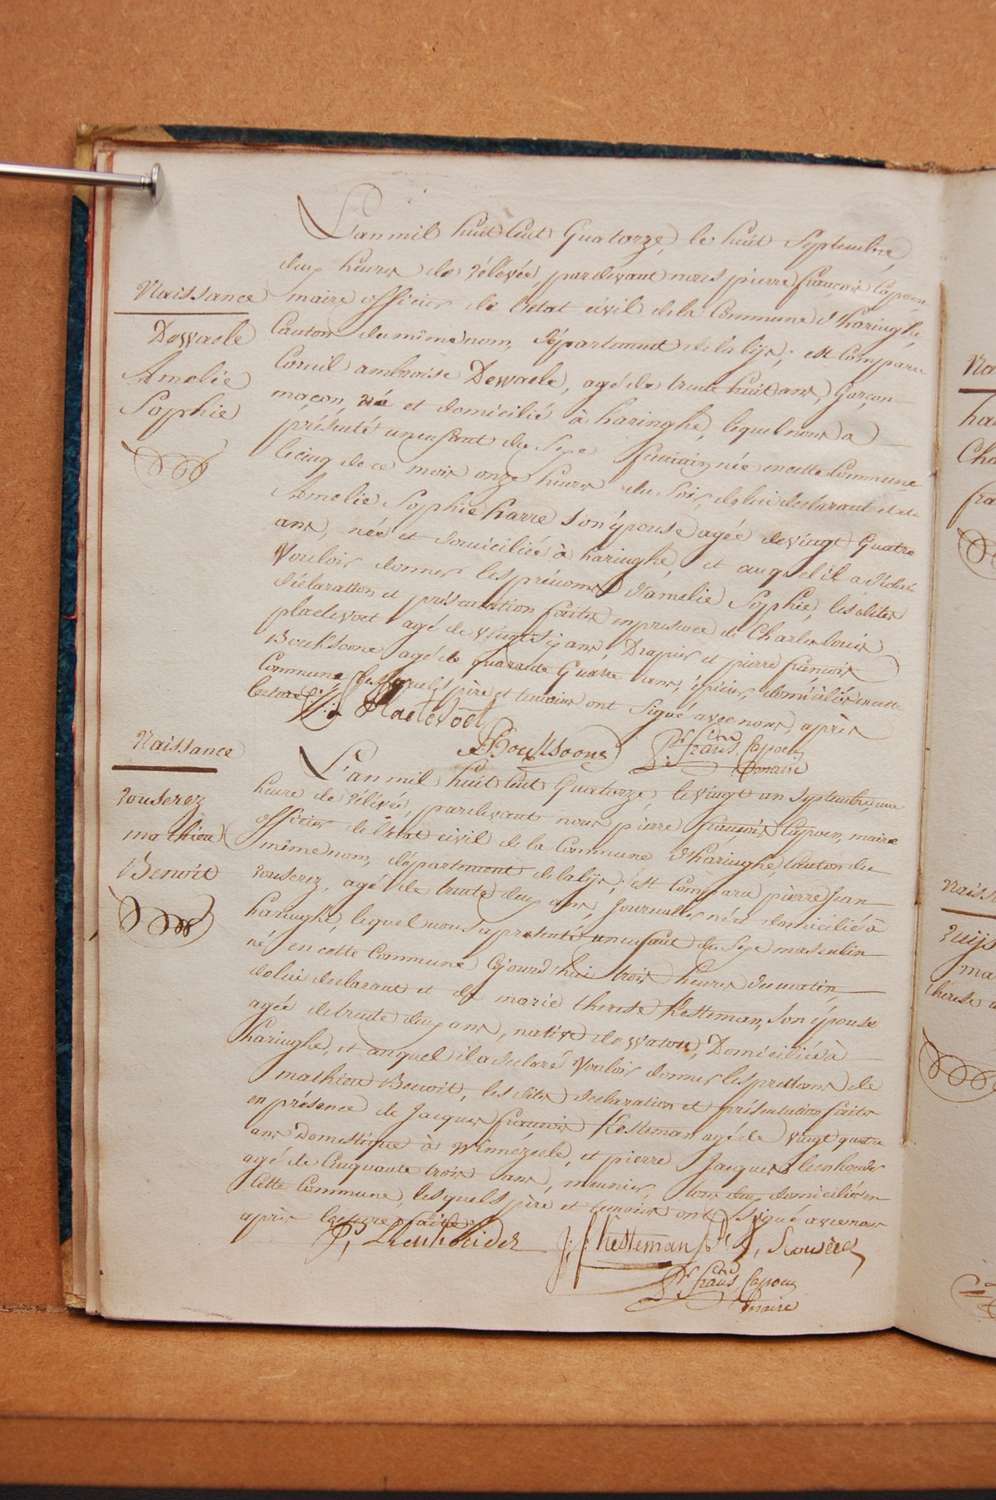 L'an mil huit cent Quatorze, le huit Septembre,
deux heures de rélévée, pardevant nous pierre françois Cappoen
maire officier de l'etat civil de la Commune d'haringhe,
Canton du même nom, département de la lijs; est Comparu
Cornil ambroise Dewaele, agé de trente huit ans, Garçon
maçon, né et domicilié à haringhe, lequel nous a
présenté un enfant du Sexe féminin, née en cette Commune
le cinq de ce mois onze heures du Soir, de lui déclarant et de
Amelie Sophie harre son épouse agée de vingt Quatre
ans, née et domiciliée à haringhe, et auquel il a déclaré
Vouloir donner les prénoms d'amelie Sophie, les dites
déclaration et présentation faites en présence de Charles louis
plaetevoet agé de vingt ans Drapier et pierre françois
Bouksoone agé de quarante Quatre ans, épicier, domiciliés en cette
Commune, lesquels père et temoins ont Signé avec nous, après
lecture
Plaetevoet
Bouksoone
P. frans Cappoen
maire
Naissance
Dewaele
Amelie
Sophie
L'an mil huit cent Quatorze, le vingt un Septembre, une
heure de rélévée, pardevant nous pierre françois Cappoen, maire
officier de l'etat civil de la Commune d'haringhe, Canton du
même nom, département de la lijs; est Comparu pierre Jean
rouserez, agé de trente deux ans, Journalier né et domicilié à
haringhe, lequel nous a présenté un enfant du Sexe masculin
né en cette Commune Cejourd'hui trois heures du matin
de lui déclarant et de marie therese Kesteman, Son épouse
agée de trente deux ans, native de watou, Domiciliée à
haringhe, et auquel il a déclaré Vouloir donner les prénoms de
mathieu Benoit, les dites déclaration et présentation faites
en présence de Jacques françois Kesteman agé de vingt quatre
ans Domestique à Winnezeele, et pierre Jacques Leenhouder
agé de Cinquante trois ans, meunier, tous deux domiciliés en
Cette Commune, lesquels père et temoins ont Signé avec nous
après lecture faite
J: f: Kesteman
P. J. Rouserez
P. frans Cappoen
maire
Naissance
rouserez
mathieu
Benoit